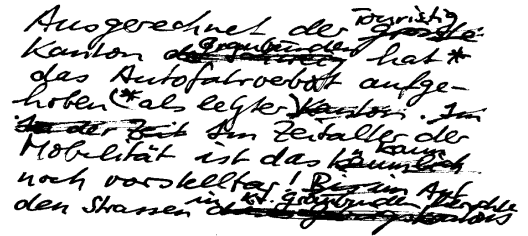 Ausgerechnet der Touristig grosste
Kanton Graubünden hat *
das Autofahrverbot aufge-
hoben (* als letzter Kanton. Im
In der Zeit Im Zeitalter der
Mobilität ist das kaum
noch vorstellbar! Bis um Auf
den Strassen in Kt. Graubünden herrschte